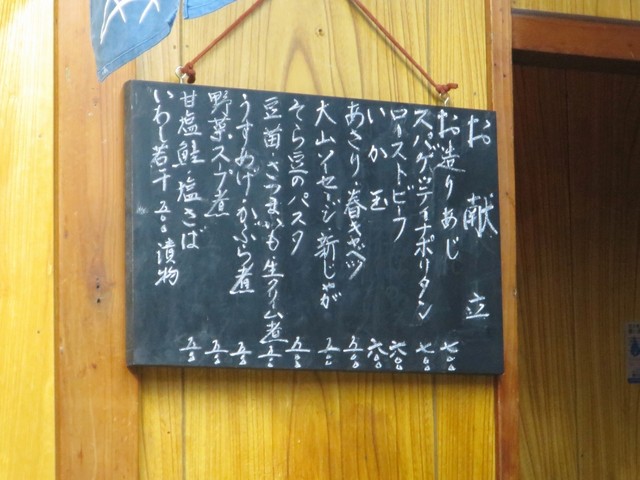 お献立
お造りあじ 七〇〇
スパゲッティナポリタン 七〇〇
ローストビーフ 六〇〇
いか玉 六〇〇
あさり・春キャベツ 五〇〇
大山ソーセージ・新じゃが 五〇〇
そら豆のパスタ 五〇〇
豆苗・さつまいも・生クリーム煮 五〇〇
うすあげ・かぶら煮 五〇〇
野菜スープ煮 五〇〇
甘塩鮭・塩さば 五〇〇
いわし若干 五〇〇 漬物